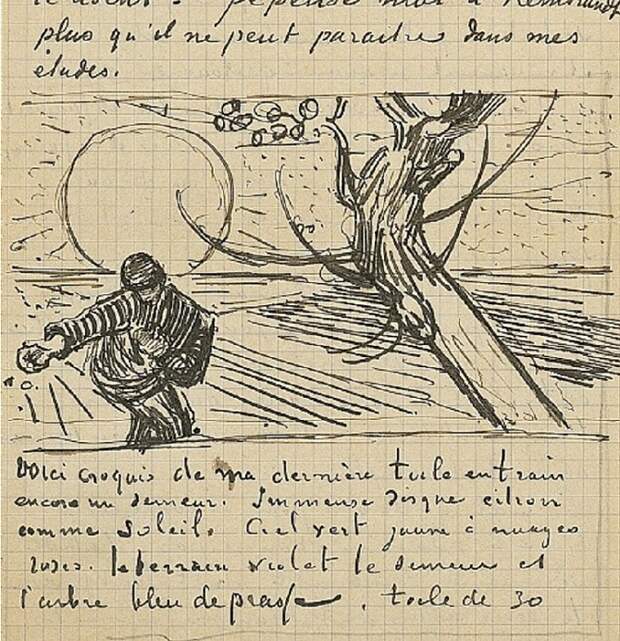 je pense moi à Rembrandt
plus qu'il ne peut paraitre dans mes
études.
Voici croquis de ma dernière toile en train
encore un semeur. Immense disque citron
comme soleil. Ciel vert jaune à nuages
roses. le terrain violet le semeur et
l'arbre bleu de prusse. toile de 30